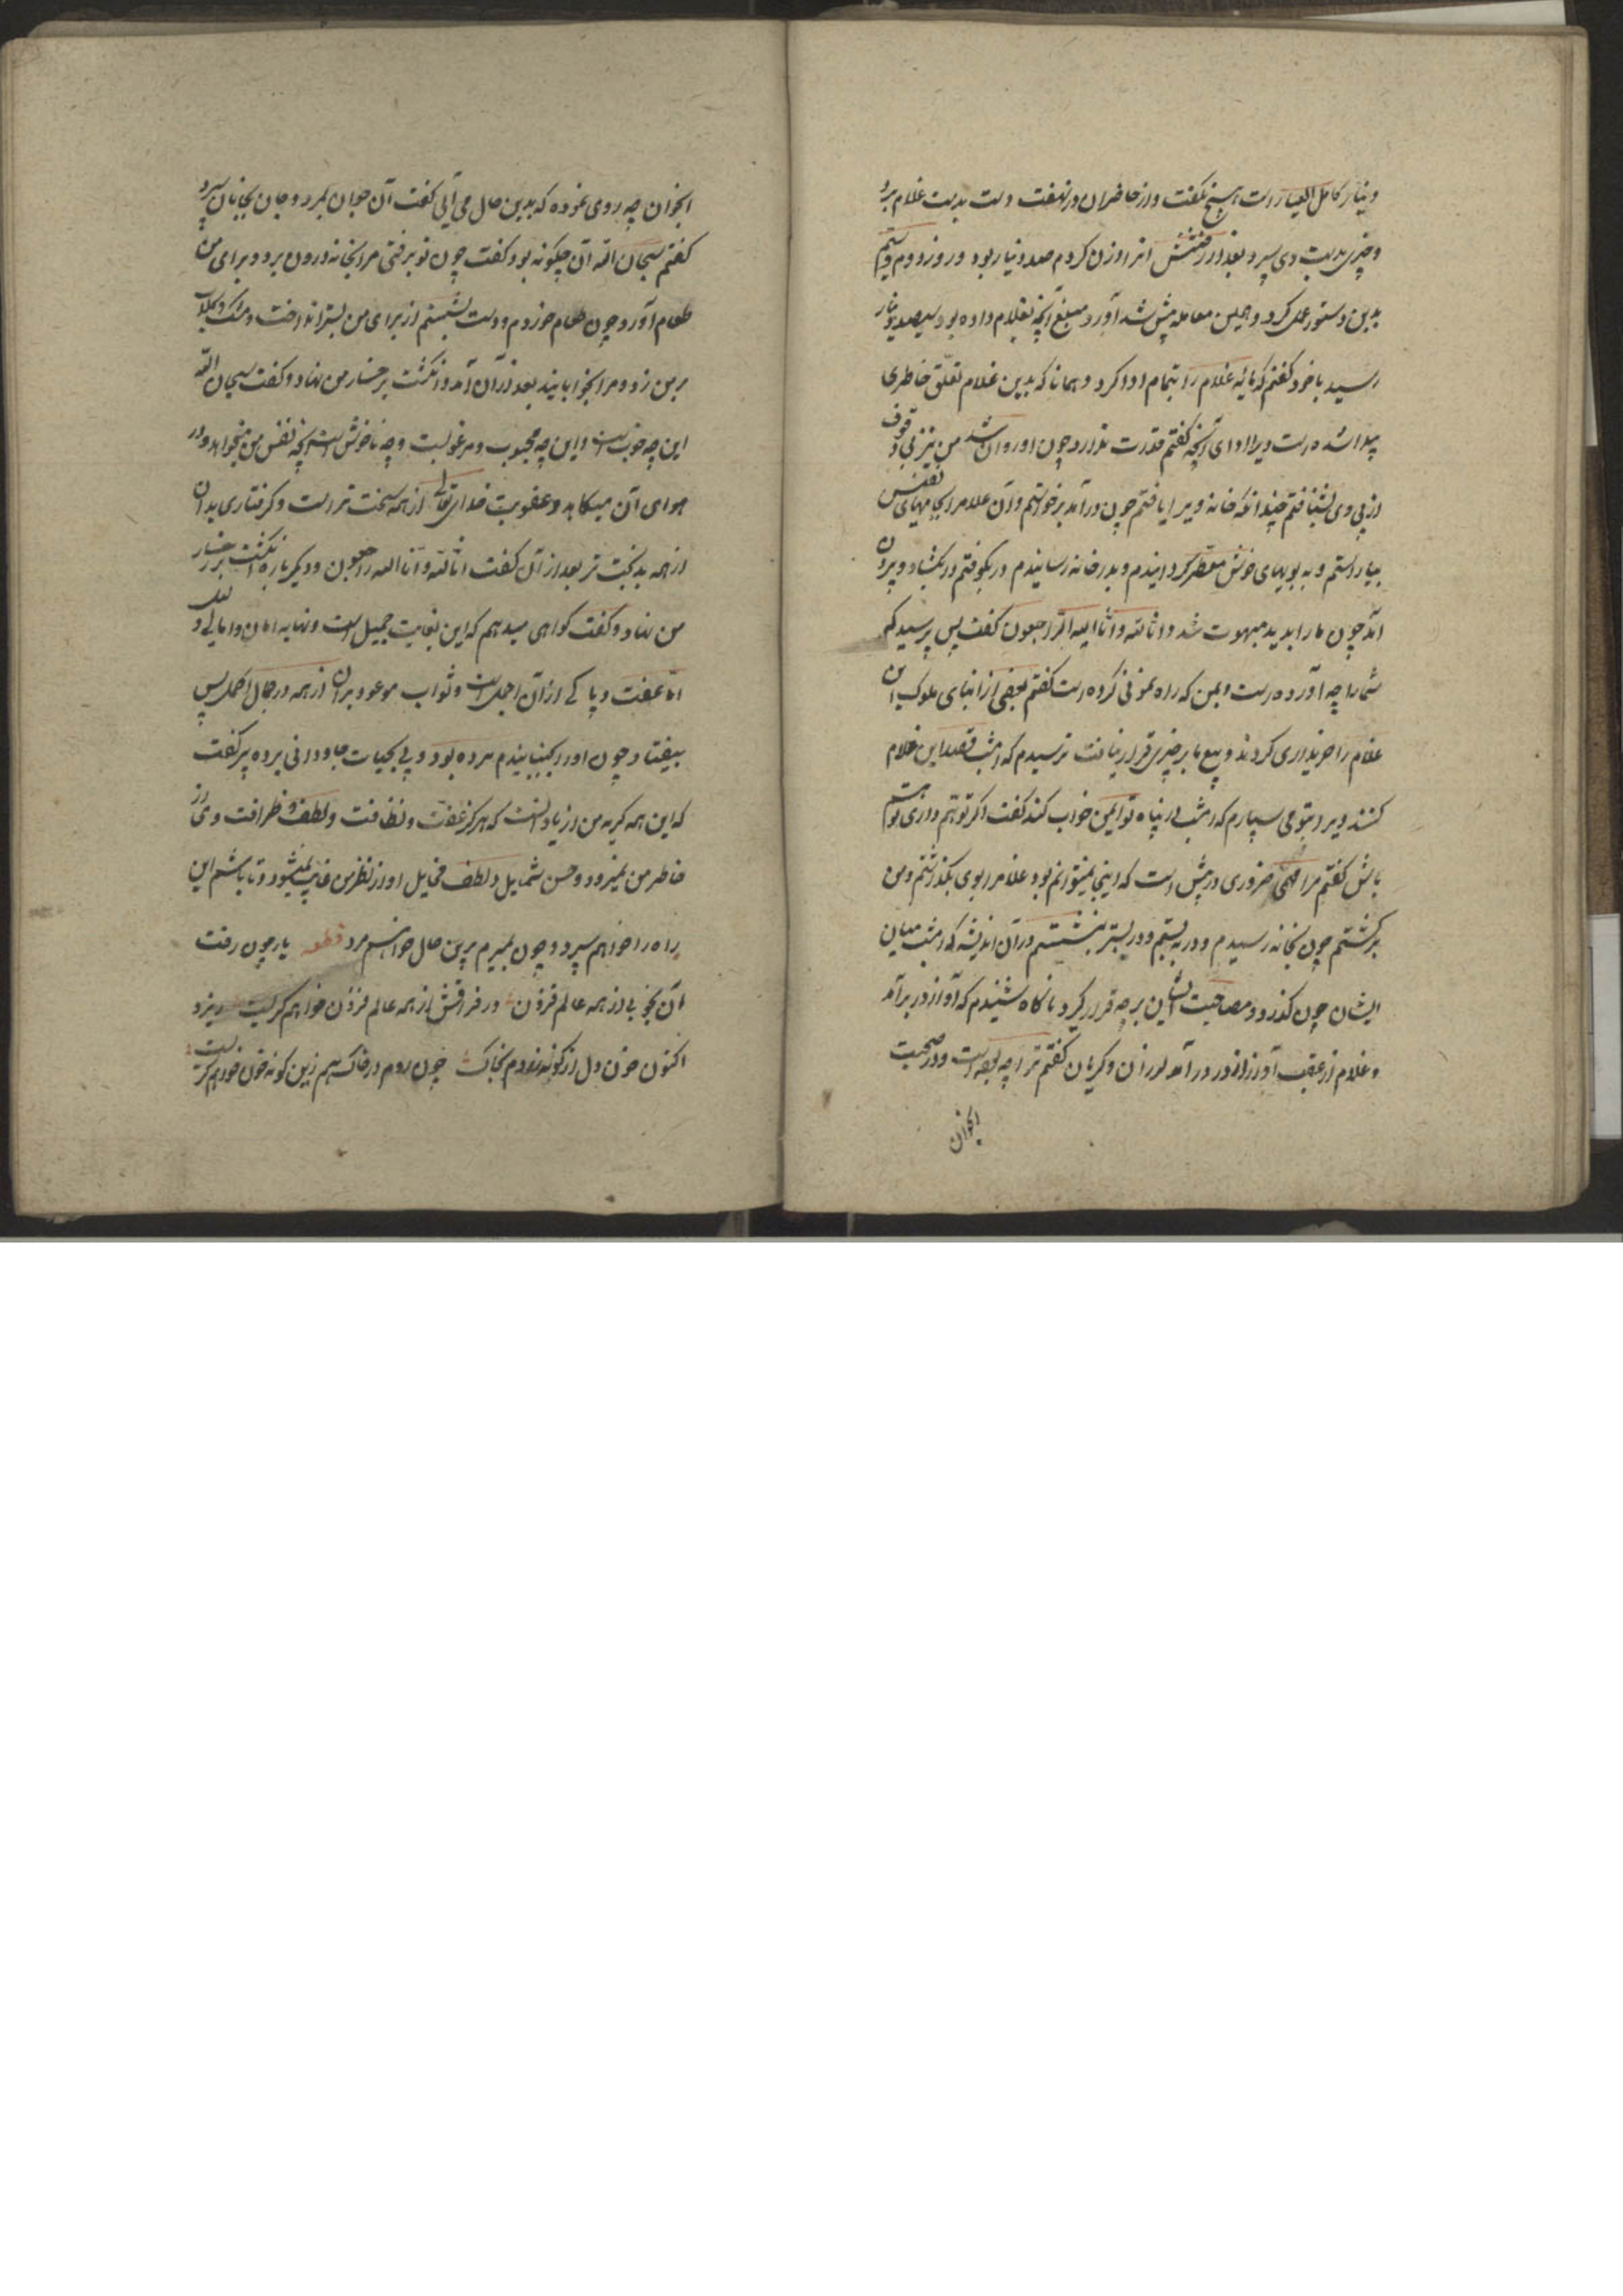 دینار کامل العیار است هیچ نگفت و از حاضران در نهفت دست بدست غلام برد
و چیزی بدست وی سپرد بعد از رفتنش انرا وزن کردم صد دینار بود و روز دوم و سیم
بدین دستور عمل کرد و همین معامله پیش آورد مبلغ آنچه بغلام داده بود بسیصد دینار
رسید با خود گفتم که بهای غلام را بتمام ادا کرد و همانا که بدین غلام تعلق خاطری
پیدا شده است ویرا ادای آنچه گفتم قدرت ندارد چون او روان شد من نیز بی وقوف
از پی وی بشتافتم چندانکه خانه ویرا یافتم چون در آمد برخواستم و آن غلام را بجامهای نفیس
بیاراستم و به بویهای خوش معطر گردانیدم و بدر خانه رسانیدم در بکوفتم در بگشاد و بیرون
آمد چون ما را بدید مبهوت شد و انا لله و انا الیه راجعون گفت پس پرسید که
شما را چه آورده است و بمن که راه نمونی کرده است گفتم بعضی از ابنای ملوک این
غلام را خریداری کردند و بیع ما بر چیزی قرار نیافت ترسیدم که امشب قصد این غلام
کنند ویرا بتو می سپارم که امشب در پناه تو ایمن خواب کند گفت اگر تو هم درآی و با او
باش گفتم مرا مهمی ضروری در پیش است که اینجا نمیتوانم بود غلام را بوی بگذاشتم و من
برگشتم چون بخانه رسیدم و در به بستم و در بستر بنشستم در آن اندیشه که امشب میان
ایشان چون گذرد و مصاحبت ایشان بر چه قرار گیرد ناگاه شنیدم که آواز در برآمد
و غلام از عقب آواز از در در آمد لرزان و گریان گفتم ترا چه بوده است و در صحبت
انجوان
انجوان چه روی نموده که بدین حال می آئی گفت آن جوان بمرد و جان بجانان سپرد
گفتم سبحان الله آن چگونه بود گفت چون تو برفتی مرا بخانه درون برد و برای من
طعام آورد چون طعام خوردم و دست بشستم از برای من بستر انداخت و مشک و گلاب
بر من زد و مرا بخوابانید بعد از آن آمد و انگشت بر رخسار من نهاد و گفت سبحان الله
این چه خوبست و این چه محبوب و مرغوبست و چه ناخوش است آنچه نفس من میخواهد و در
هوای آن میکاهد و عقوبت خدای تعالی از همه سخت تر است و گرفتاری بدان
از همه بدبخت تر بعد از آن گفت انا لله و انا الیه راجعون و دیگر باره انگشت بر رخسار
من نهاد و گفت گواهی میدهم که این بغایت جمیل است و نهایه امان و امالی و
اما عفت و پاکی از آن اجمل است و ثواب موعود بر آن از همه در جمال اکمل پس
بیفتاد چون او را بجنبانیدم مرده بود و پی بحیات جاودانی برده پیر گفت
که این همه گریه من از یاد انست که هرگز عفت و نظافت و لطف و ظرافت وی از
خاطر من نمیرود و حسن شمایل و لطف مخایل او از نظر من غایب نمیشود و تا باشم این
راه را خواهم سپرد و چون بمیرم برین حال خواهم مرد قطعه یار چون رفت
آن بخوبی از همه عالم فزون در فراقش از همه عالم فزون خواهم گریست ریزد
اکنون خون دل از گونه زردم بخاک چون روم در خاک هم زین گونه خون خواهم گریست